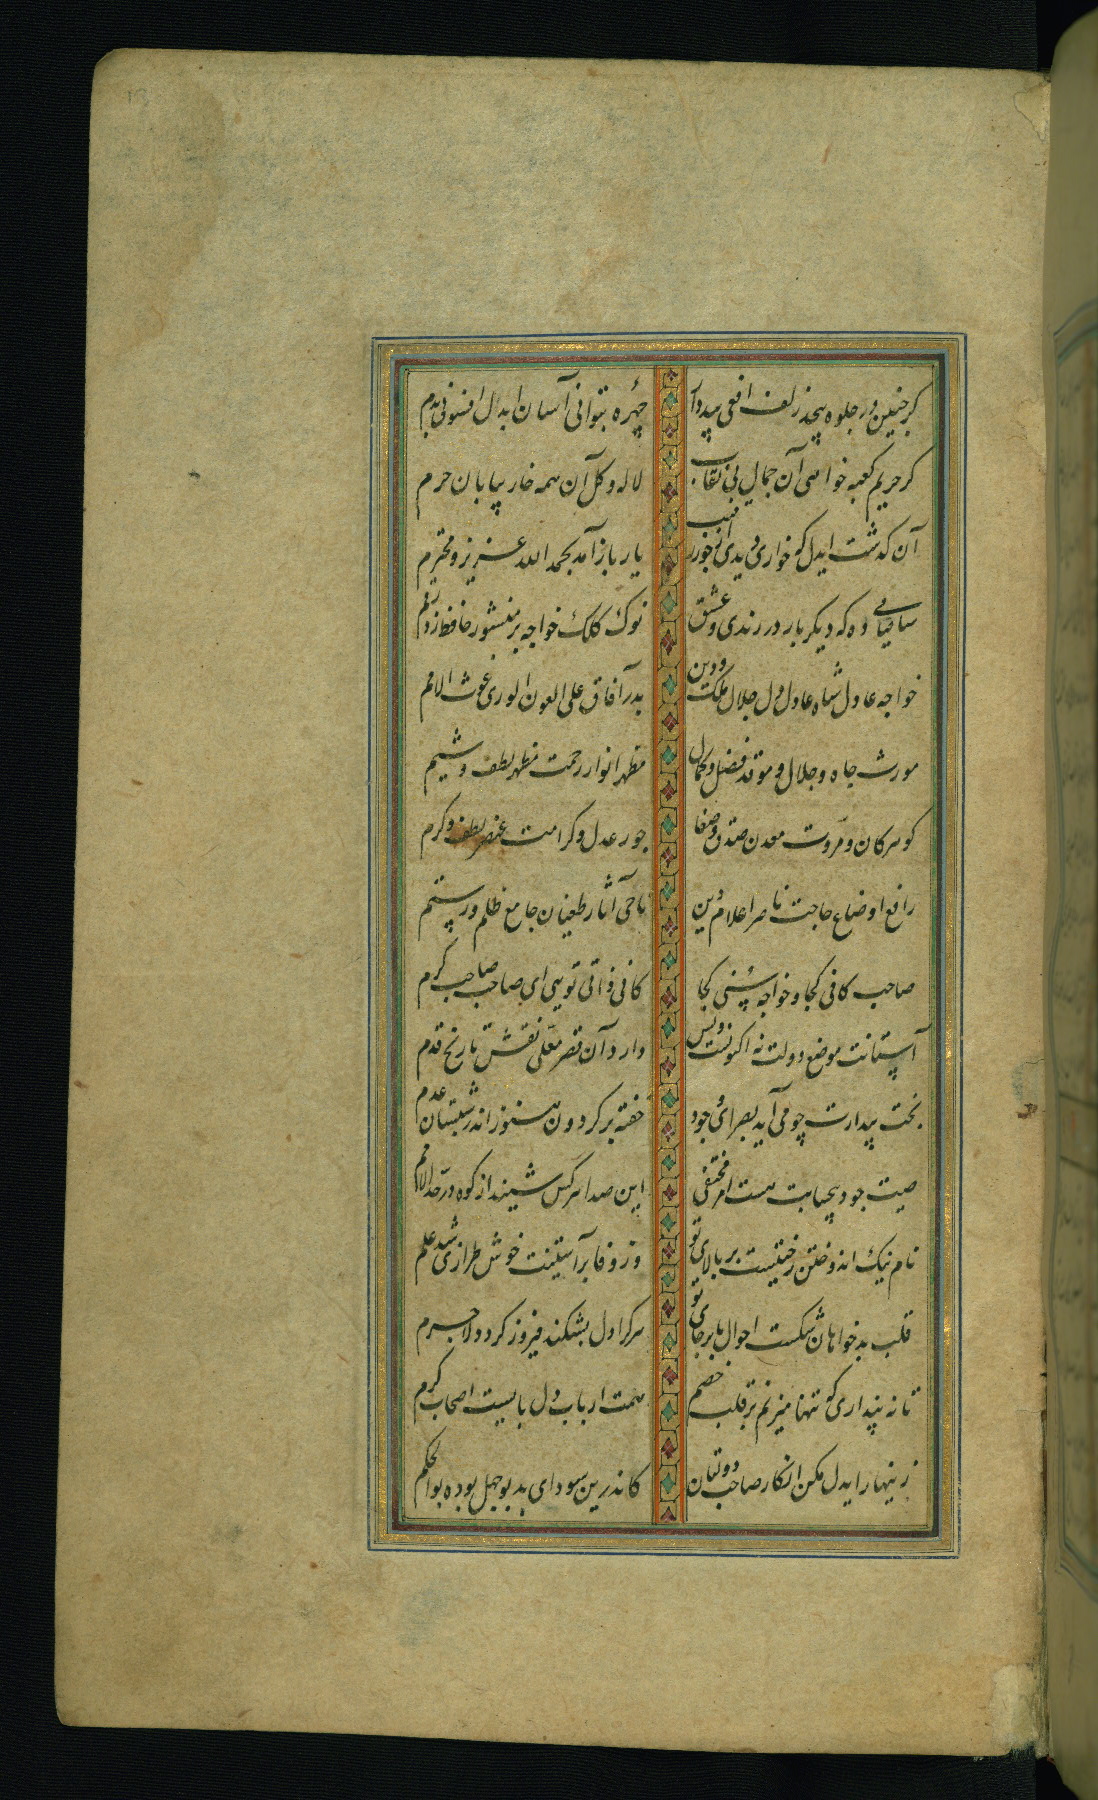 گر چنین در جلوه پیچد زلف افعی پیکر
چهره نتوانی آسان ابدال افسونی بدم
گر حریم کعبه خواهی آن جمال بی نقاب
لاله و گل آن همه خار بیابان حرم
آن گذشت ایدل که خواری دیدی از جور رقیب
یار باز آمد بحمد الله عزیز و محترم
ساقیا می ده که دیگر بار در رندی و عشق
نوک کلک خواجه بر منشور حافظ زد رقم
خواجه عادل شاه عادل دل جلال ملک و دین
بدر آفاق علی العون الوری غوث الامم
مورث جاه و جلال و موقد فضل و کمال
مظهر انوار رحمت مظهر لطف و شیم
گوهر کان و مروت معدن صدق و صفا
جور عدل و کرامت عنصر لطف و کرم
رافع اوضاع حاجت ناصر اعلام دین
ماحی آثار طغیان جامع ظلم و ستم
صاحب کافی کجا و خواجه کجا
کافی ذاتی تویی ای صاحب صاحب کرم
آستانت موضع دولت نه اکنونست و بس
دارد آن قصر معلی نقش تاریخ قدم
بخت بیدارت چو می آید بصحرای وجود
خفته بر گردون هنوز اندر شبستان عدم
صیت جود بیحسابت هست امر مختفی
این صدا هر کس شنید از کوه در
نام نیک اندوختن رختیست بر بالای تو
وز وفا بر آستینت خوش طرازی شد علم
قلب بدخواهان شکست احوال پابرجای تو
هر که اول بشکند فیروز گردد لاجرم
تا نه پنداری که تنها میزنم بر قلب خصم
همت ارباب دل بایست اصحاب کرم
زینهار ایدل مکن انکار صاحب دولتان
کاندرین سودای بد بوجهل بوده بوالحکم